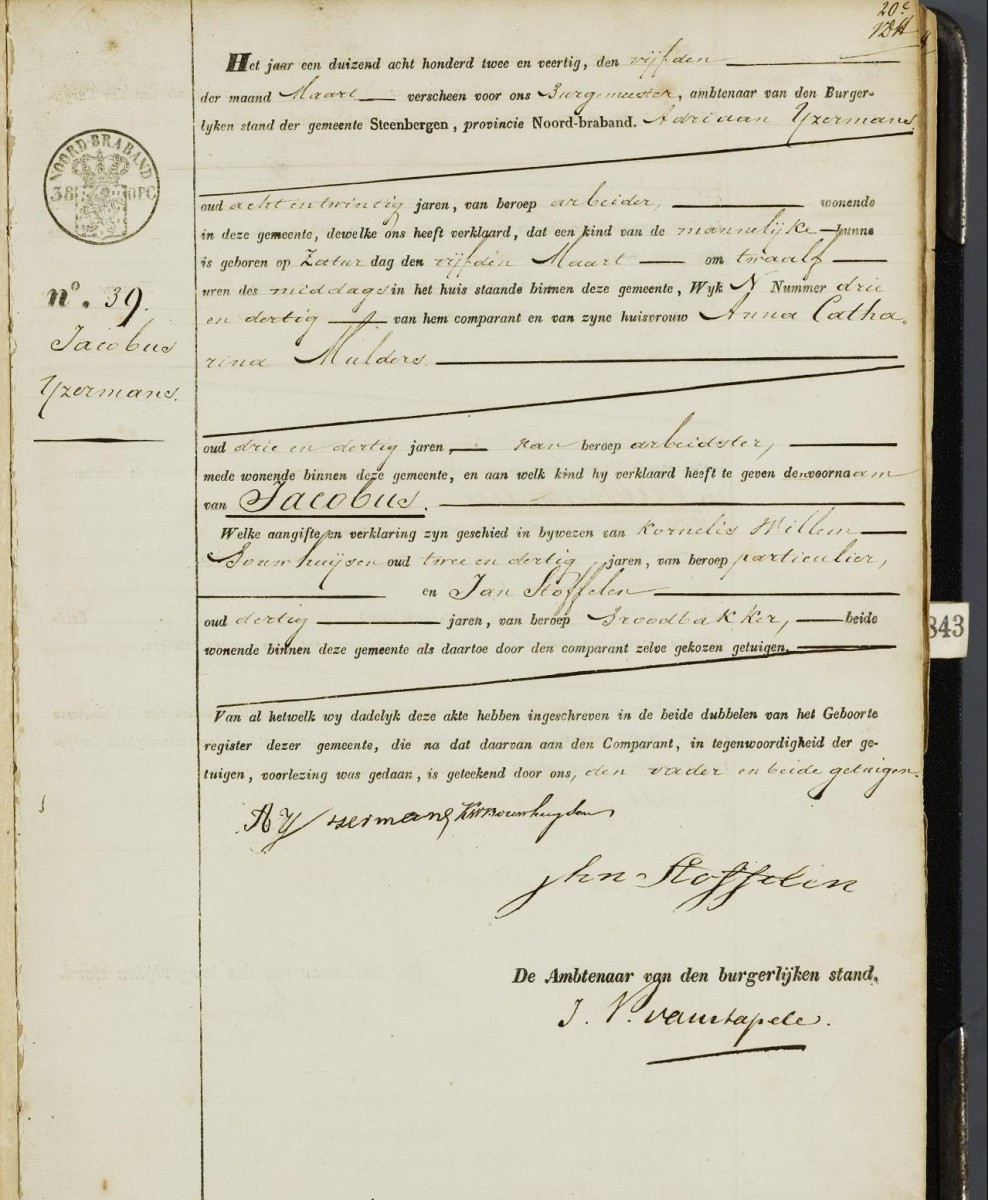 20e
Het jaar een duizend acht honderd twee en veertig, den vijfden
der maand Maart verscheen voor ons Burgemeester, ambtenaar van den Burger-
lyken stand der gemeente Steenbergen, provincie Noord-braband. Adriaan Yzermans.
NOORD BRABAND
38 OPC
oud acht en twintig jaren, van beroep arbeider, wonende
in deze gemeente, dewelke ons heeft verklaard, dat een kind van de mannelijke kunne
is geboren op Zaturdag den vijfden Maart om twaalf
uren des middags in het huis staande binnen deze gemeente, Wyk N Nummer drie
en dertig van hem comparant en van zyne huisvrouw Anna Catha-
rina Mulders.
no. 39.
Jacobus
Yzermans.
oud drie en dertig jaren, van beroep arbeidster,
mede wonende binnen deze gemeente, en aan welk kind hy verklaard heeft te geven den voornaam
van Jacobus.
Welke aangifte en verklaring zyn geschied in bywezen van Kornelis Willem
Bouwhuijsen oud twee en dertig jaren, van beroep particulier,
en Jan Stoffelen
oud dertig jaren, van beroep Broodbakker, beide
wonende binnen deze gemeente als daartoe door den comparant zelve gekozen getuigen.
Van al hetwelk wy dadelyk deze akte hebben ingeschreven in de beide dubbelen van het Geboorte
register dezer gemeente, die na dat daarvan aan den Comparant, in tegenwoordigheid der ge-
tuigen, voorlezing was gedaan, is geteekend door ons, den vader en beide getuigen.
A Yzermans KWBouwhuysen
Jan Stoffelen
De Ambtenaar van den burgerlijken stand,
J. V. vanstapele.
843